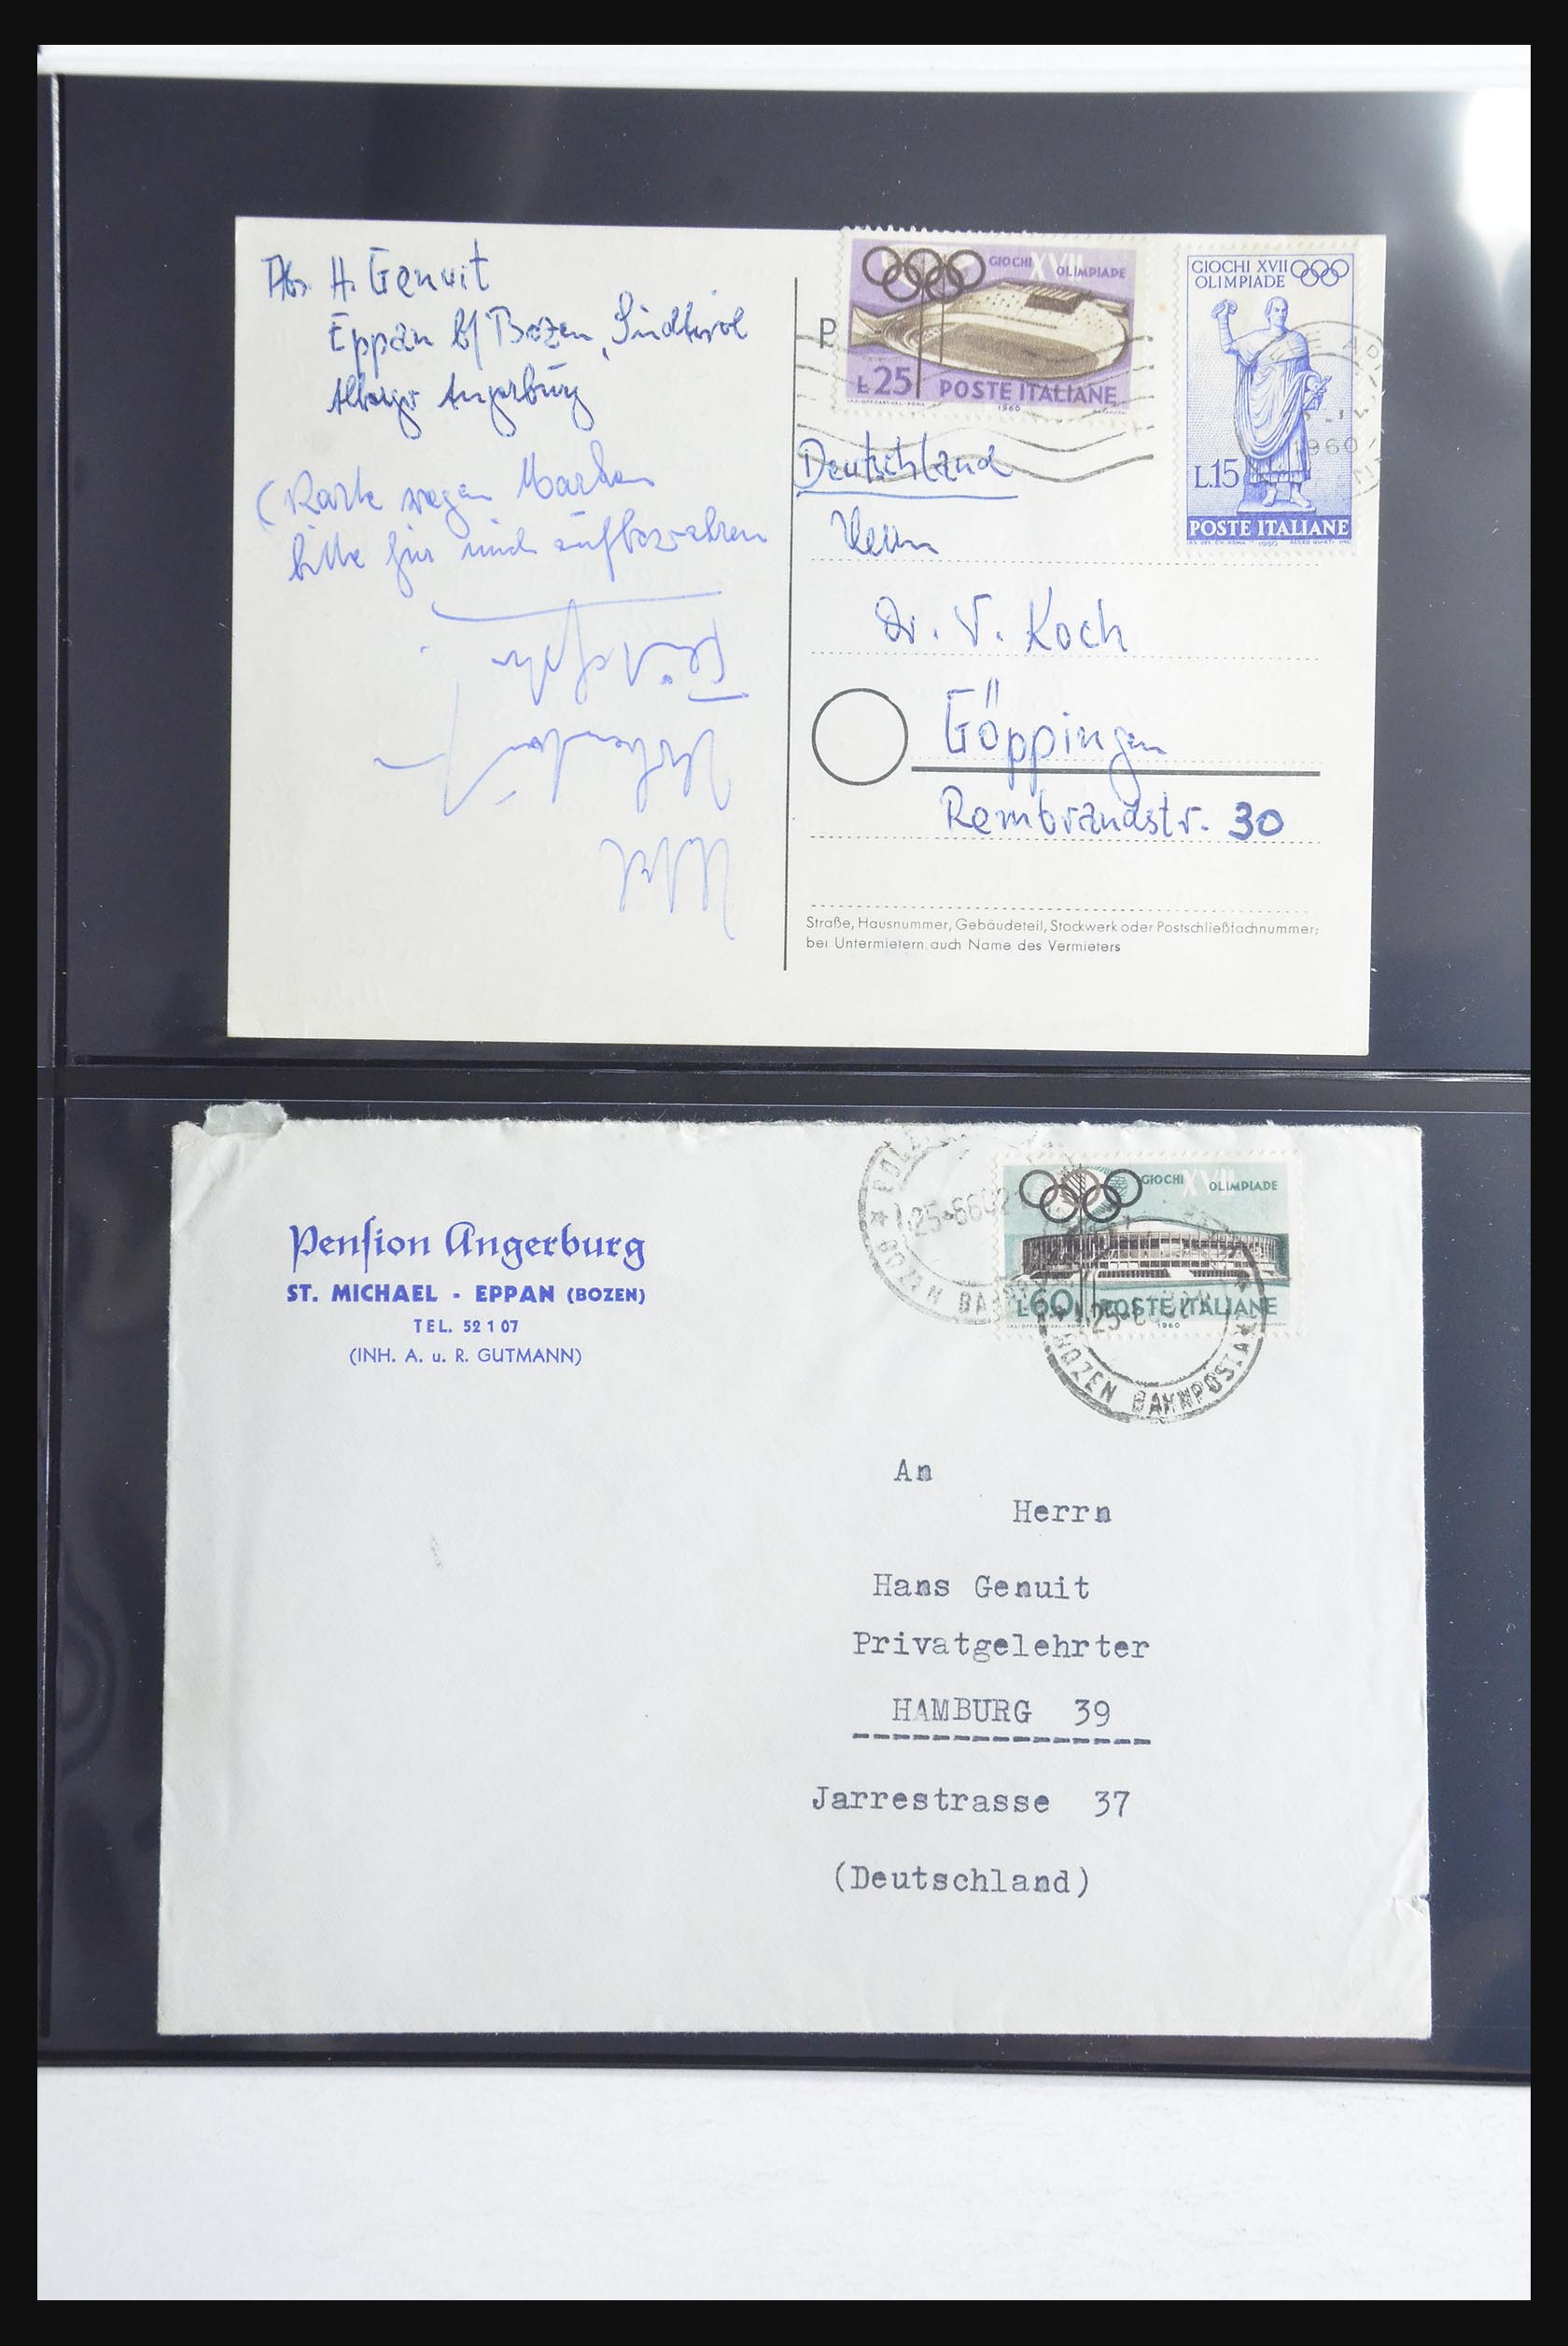 Abs. H. Genuit
Eppan b/ Bozen, Südtirol
Albergo Angerburg
(Karte wegen Marken
bitte für mich aufbewahren
P
GIOCHI XVII OLIMPIADE
L.25 POSTE ITALIANE
1960
GIOCHI XVII
OLIMPIADE
1960
L.15
POSTE ITALIANE
Deutschland
Herrn
Dr. V. Koch
Göppingen
Rembrandstr. 30
Straße, Hausnummer, Gebäudeteil, Stockwerk oder Postschließfachnummer;
bei Untermietern auch Name des Vermieters
Pension Angerburg
ST. MICHAEL - EPPAN (BOZEN)
TEL. 52 1 07
(INH. A. u. R. GUTMANN)
GIOCHI XVII OLIMPIADE
L.60 POSTE ITALIANE
1960
BOZEN BAHNPOSTAMT
An
Herrn
Hans Genuit
Privatgelehrter
HAMBURG 39
Jarrestrasse 37
(Deutschland)